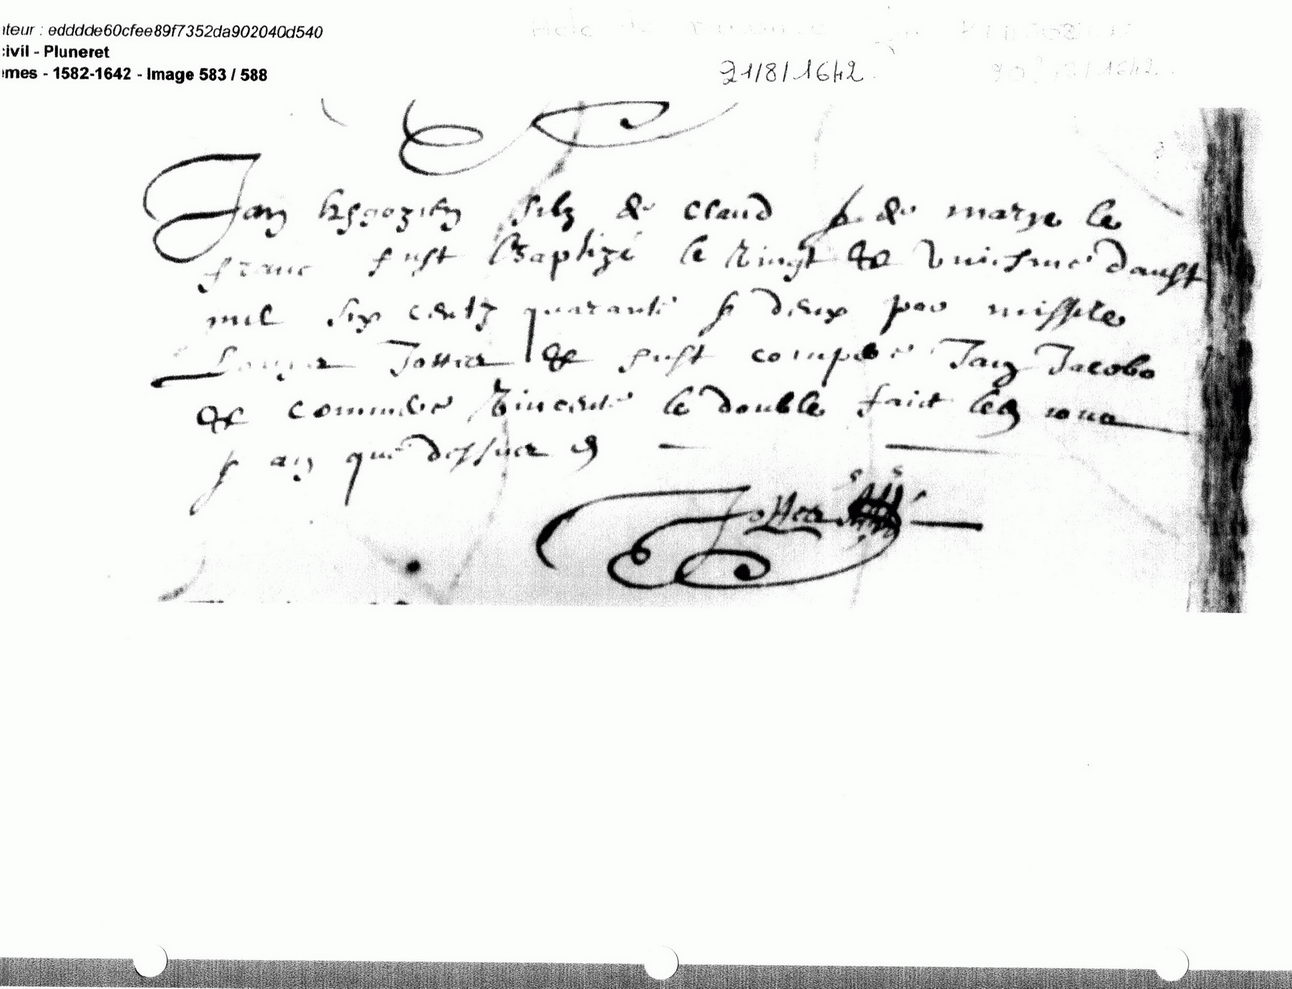 ateur : edddde60cfee89f7352da902040d540
civil - Pluneret
emes - 1582-1642 - Image 583 / 588
21/8/1642
Jan filz de claud & de marye le
franc fust Baptizé le vingt & uniesme d'aust
mil six centz quarante & deux par missire
Jottier & fust compere Jan Jacobo
& commere Vincente le double faict les jour
& an que dessus
Jottier